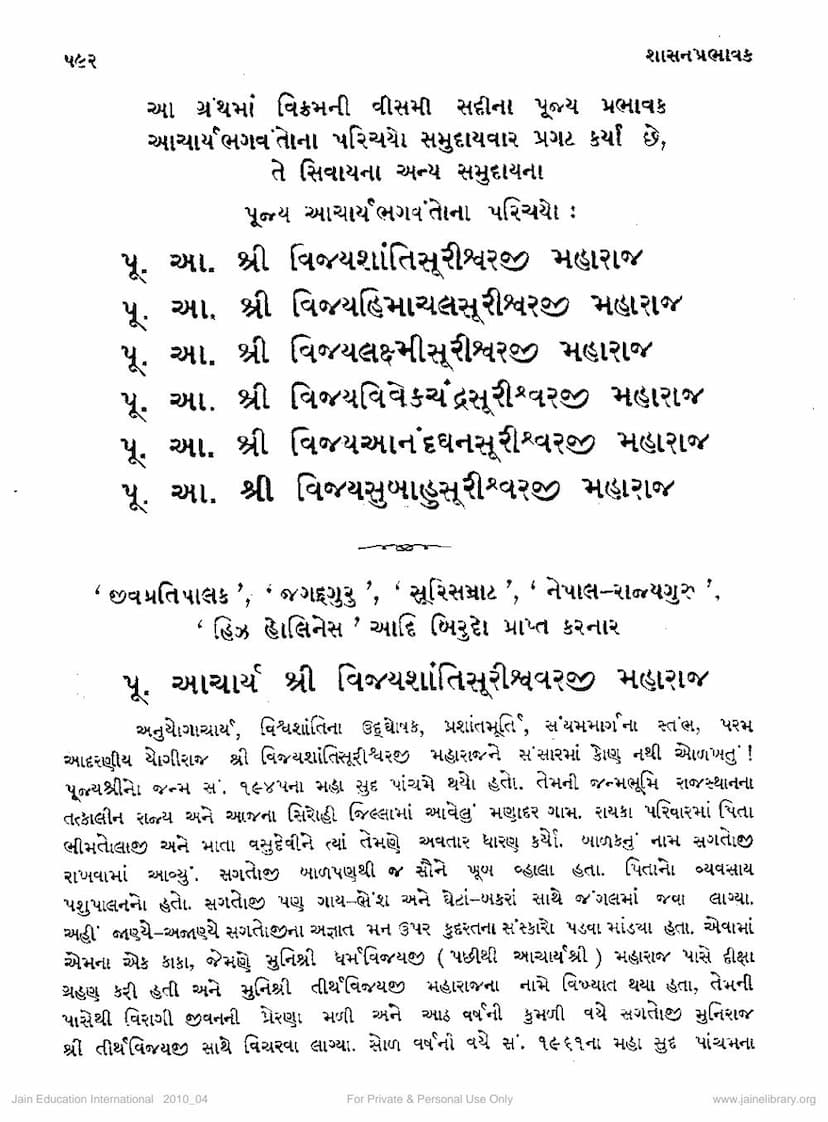 ૫૯૨
શાસનપ્રભાવક
આ ગ્રંથમાં વિક્રમની વીસમી સદીના પૂજ્ય પ્રભાવક
આચાર્યભગવંતોના પરિચયો સમુદાયવાર પ્રગટ કર્યાં છે,
તે સિવાયના અન્ય સમુદાયના
પૂજ્ય આચાર્યભગવંતોના પરિચયો :
પૂ. આ. શ્રી વિજયશાંતિસૂરીશ્વરજી મહારાજ
પૂ. આ. શ્રી વિજયહિમાચલસૂરીશ્વરજી મહારાજ
પૂ. આ. શ્રી વિજયલક્ષ્મીસૂરીશ્વરજી મહારાજ
પૂ. આ. શ્રી વિજયવિવેકચંદ્રસૂરીશ્વરજી મહારાજ
પૂ. આ. શ્રી વિજયઆનંદઘનસૂરીશ્વરજી મહારાજ
પૂ. આ. શ્રી વિજયસુબાહુસૂરીશ્વરજી મહારાજ
‘ જીવપ્રતિપાલક ’, ‘ જગદ્ગુરુ ’, ‘ સૂરિસમ્રાટ ’, ‘ નેપાલ–રાજ્યગુરુ ’,
‘ હિઝ હોલિનેસ ’ આદિ બિરુદો પ્રાપ્ત કરનાર
પૂ. આચાર્ય શ્રી વિજયશાંતિસૂરીશ્વવરજી મહારાજ
અનુયોગાચાર્ય, વિશ્વશાંતિના ઉદ્ઘોષક, પ્રશાંતમૂર્તિ, સંયમમાર્ગના સ્તંભ, પરમ
આદરણીય યોગીરાજ શ્રી વિજયશાંતિસૂરીશ્વરજી મહારાજને સંસારમાં કોણ નથી ઓળખતું !
પૂજ્યશ્રીનો જન્મ સં. ૧૯૪૫ના મહા સુદ પાંચમે થયો હતો. તેમની જન્મભૂમિ રાજસ્થાનના
તત્કાલીન રાજ્ય અને આજના સિરોહી જિલ્લામાં આવેલું મણાદર ગામ. રાયકા પરિવારમાં પિતા
ભીમતોલાજી અને માતા વસુદેવીને ત્યાં તેમણે અવતાર ધારણ કર્યો. બાળકનું નામ સગતોજી
રાખવામાં આવ્યું. સગતોજી બાળપણથી જ સૌને ખૂબ વ્હાલા હતા. પિતાનો વ્યવસાય
પશુપાલનનો હતો. સગતોજી પણ ગાય–ભેંશ અને ઘેટાં–બકરાં સાથે જંગલમાં જવા લાગ્યા.
અહીં જાણ્યે–અજાણ્યે સગતોજીના અજ્ઞાત મન ઉપર કુદરતના સંસ્કારો પડવા માંડ્યા હતા. એવામાં
એમના એક કાકા, જેમણે મુનિશ્રી ધર્મવિજયજી ( પછીથી આચાર્યશ્રી ) મહારાજ પાસે દીક્ષા
ગ્રહણ કરી હતી અને મુનિશ્રી તીર્થવિજયજી મહારાજના નામે વિખ્યાત થયા હતા, તેમની
પાસેથી વિરાગી જીવનની પ્રેરણા મળી અને આઠ વર્ષની કુમળી વયે સગતોજી મુનિરાજ
શ્રી તીર્થવિજયજી સાથે વિચરવા લાગ્યા. સોળ વર્ષની વયે સં. ૧૯૬૧ના મહા સુદ પાંચમના
Jain Education International 2010_04
For Private & Personal Use Only
www.jainelibrary.org